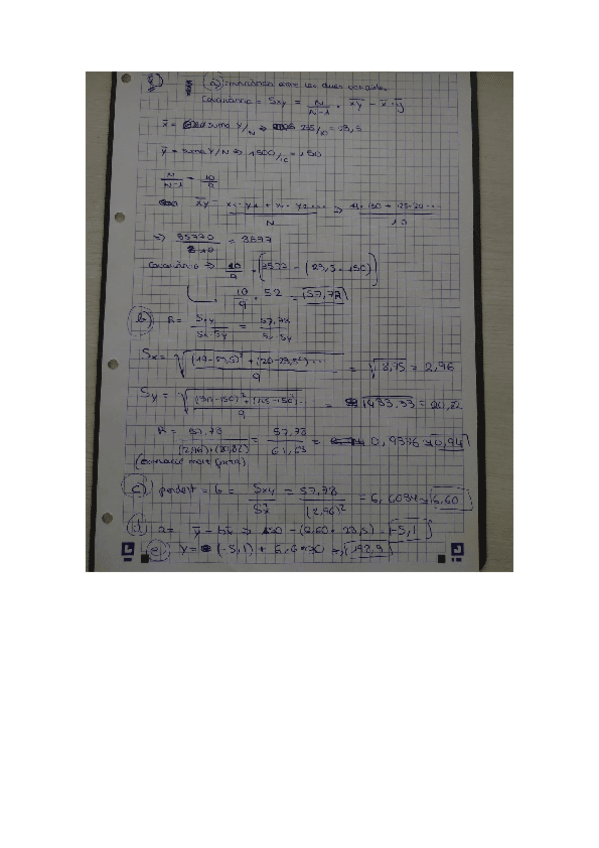 a) covariancia entre les dues variables
Covariància = Sxy = N/N-1 · x̄ȳ - x̄·ȳ
x̄ = suma X/N => 235/10 = 23,5
ȳ = suma Y/N => 1500/10 = 150
N/N-1 = 10/9
x̄ȳ = x₁·y₁ + x₂·y₂.... / N =>
=> 35770/10 = 3577
Covariància => 10/9 · (3577 - (23,5 · 150))
10/9 · 52 = 57,78
b) R = Sxy/Sx·Sy = 57,78/Sx·Sy
Sx = √((19-23,5)²+(20-23,5)².../9) = √8,75 = 2,96
Sy = /9 = √433,33 = 20,82
R = 57,78/(2,96)·(20,82) = 57,78/61,63 = 0,9376 ≈ 0,94
c) pendent = b = Sxy/Sx̄ = 57,78/(2,96)² = 6,6034 ≈ 6,60
d) a = ȳ - bx̄ => 150 - (6,60 · 23,5) = -5,1
e) y = (-5,1) + 6,6 · => 192,9